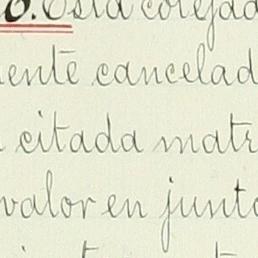 o. Está cotejada
ente cancelad
citada matr
valor en junto